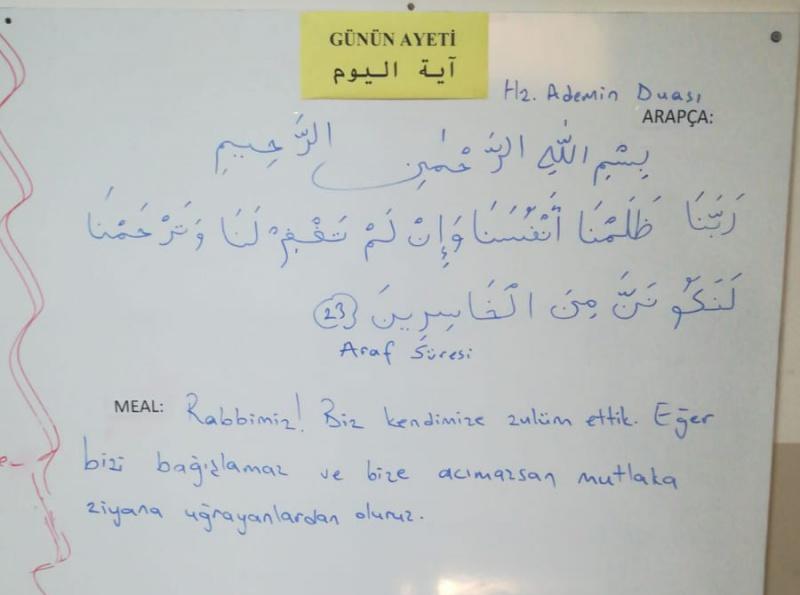 GÜNÜN AYETİ
آية اليوم
Hz. Ademin Duası
ARAPÇA:
بِسْمِ اللّٰهِ الرَّحْمٰنِ الرَّحِيمِ
رَبَّنَا ظَلَمْنَا أَنْفُسَنَا وَإِنْ لَمْ تَغْفِرْ لَنَا وَتَرْحَمْنَا
لَنَكُونَنَّ مِنَ الْخَاسِرِينَ (23)
Araf Sûresi
MEAL: Rabbimiz! Biz kendimize zulüm ettik. Eğer
bizi bağışlamaz ve bize acımazsan mutlaka
ziyana uğrayanlardan oluruz.